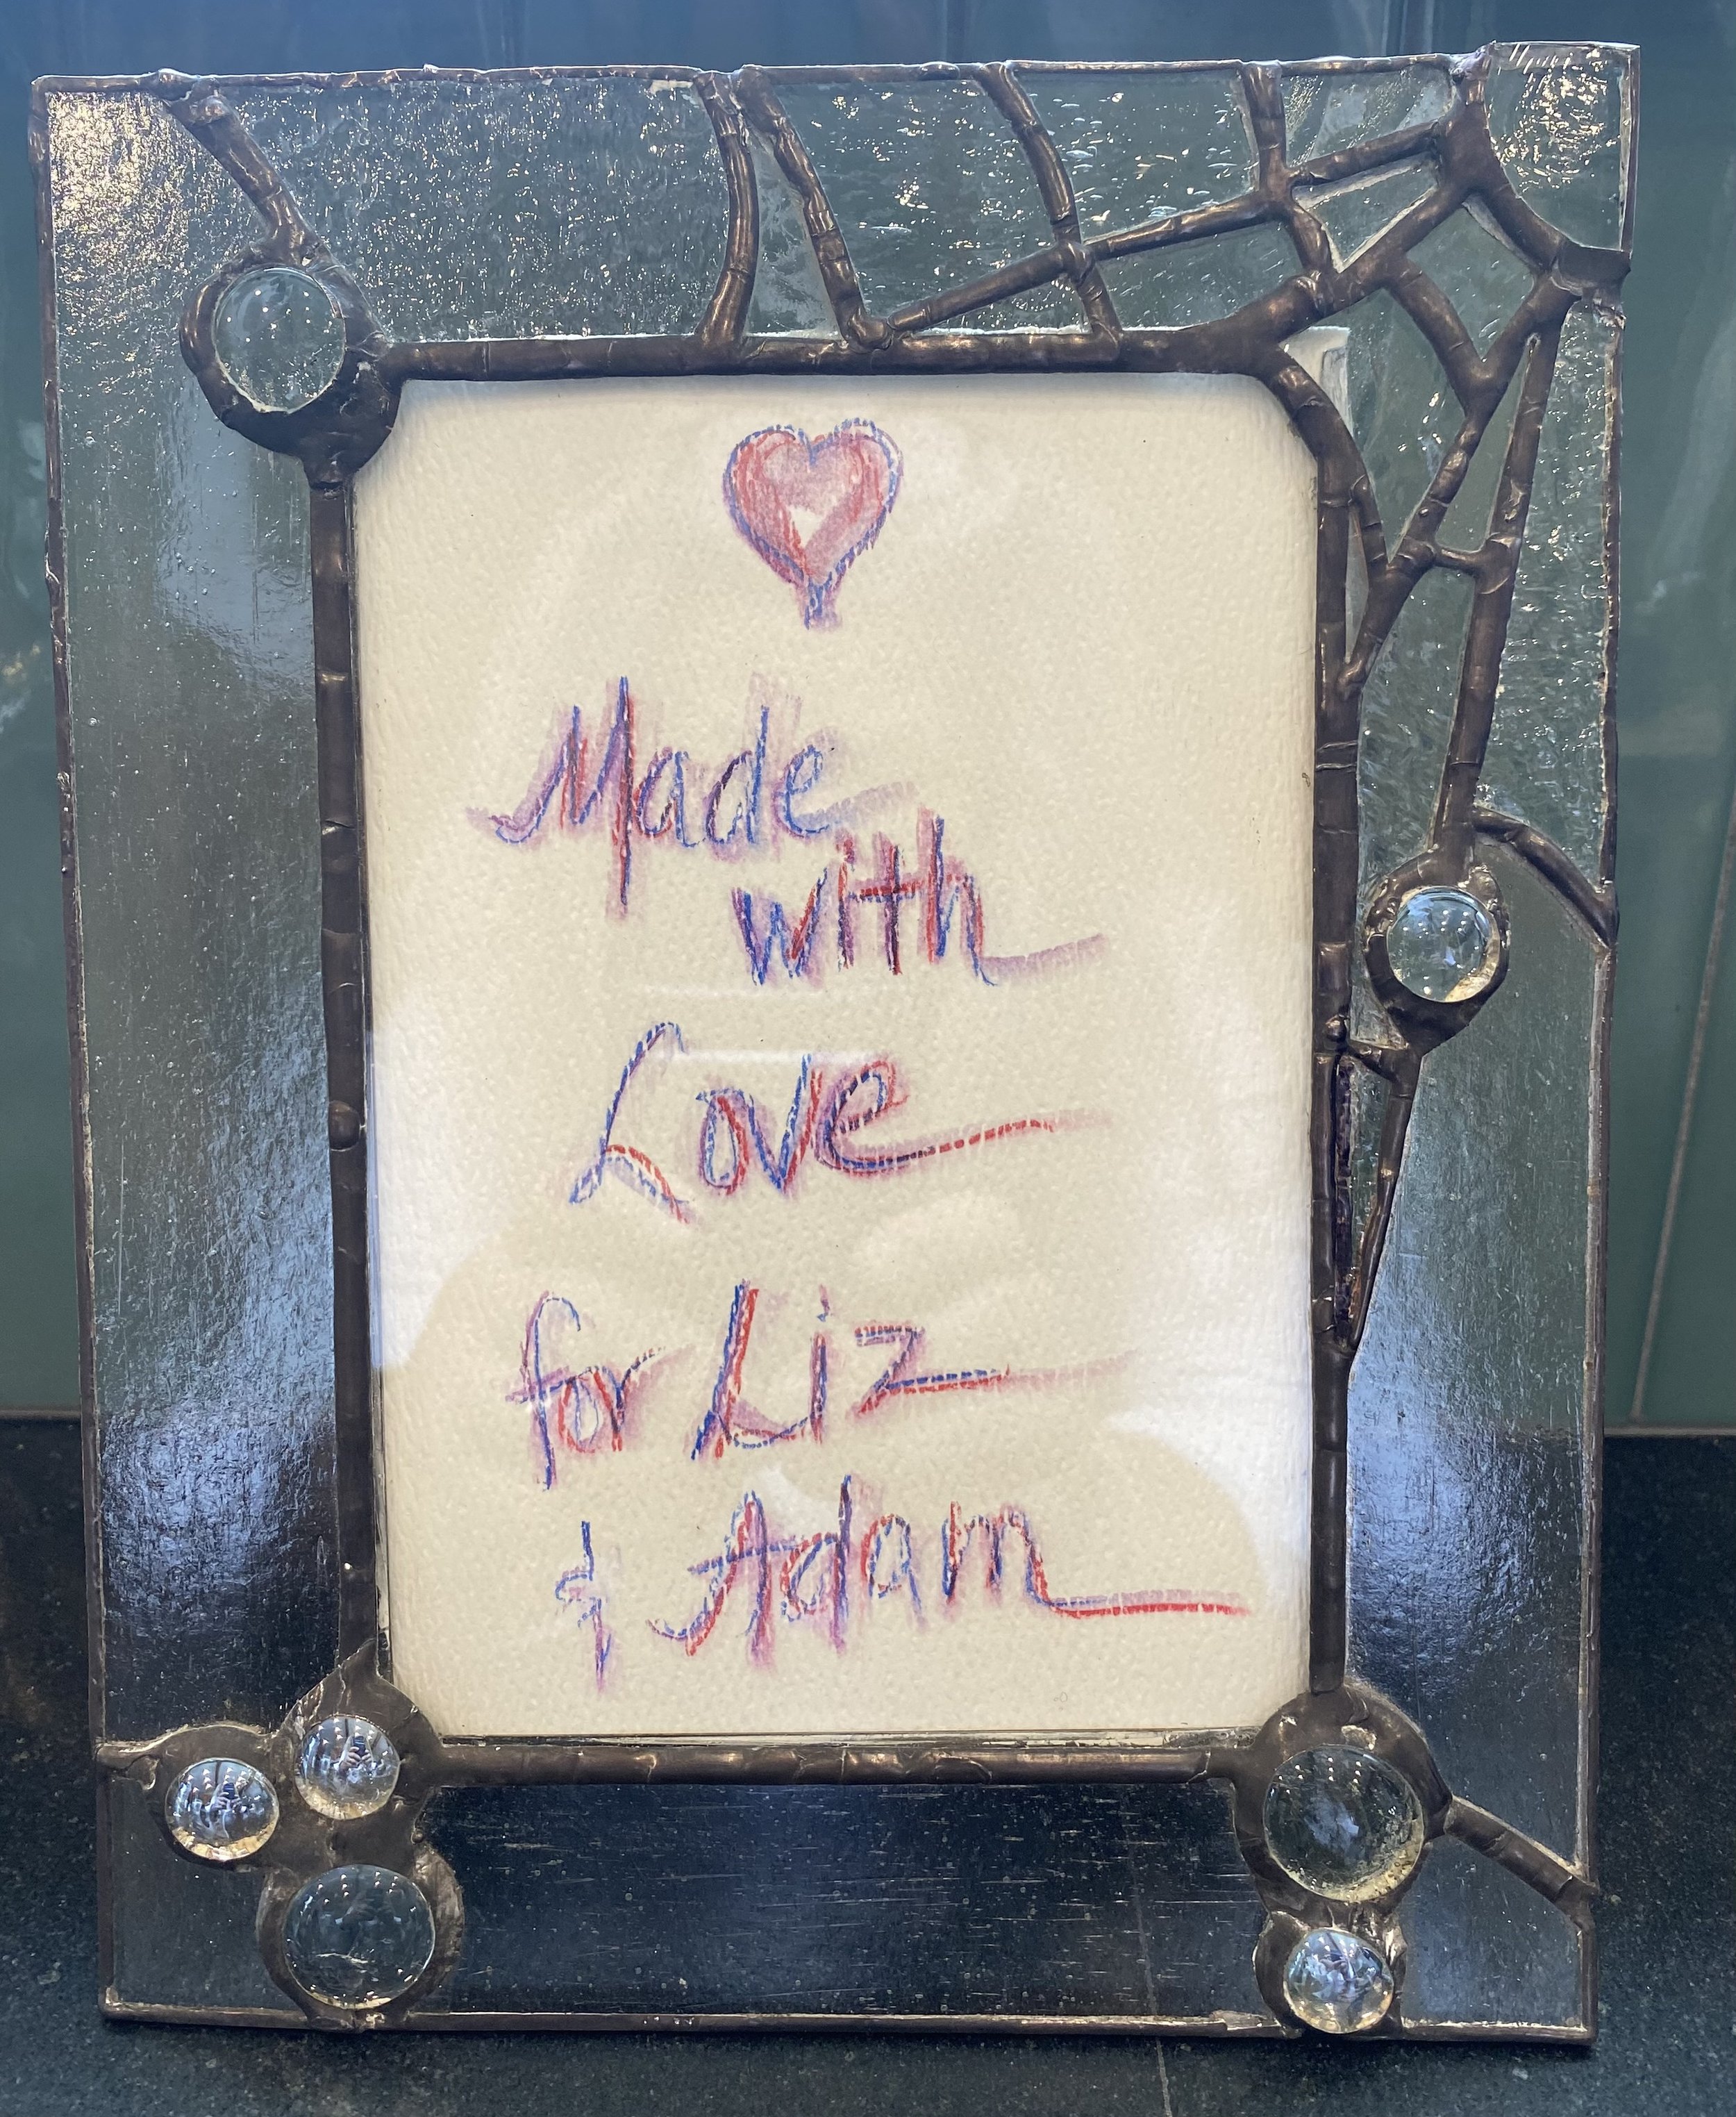 Made
with
Love
for Liz
& Adam